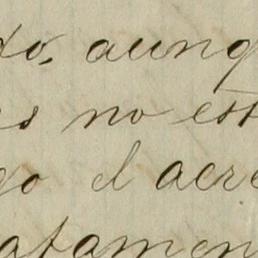 do, aunq
es no est
go el acre
atamen